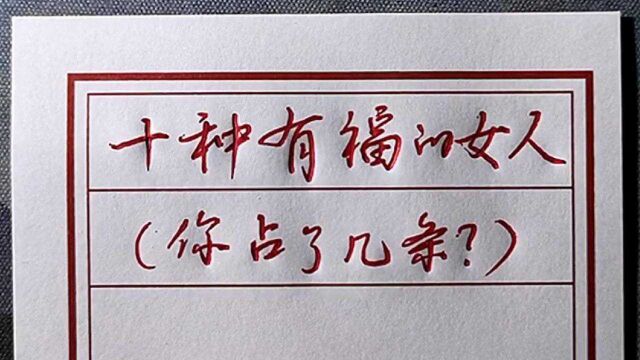 十种有福的女人
(你占了几条?)